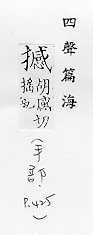 四聲篇海
撼
胡感切
搖也
(手部. P.425)